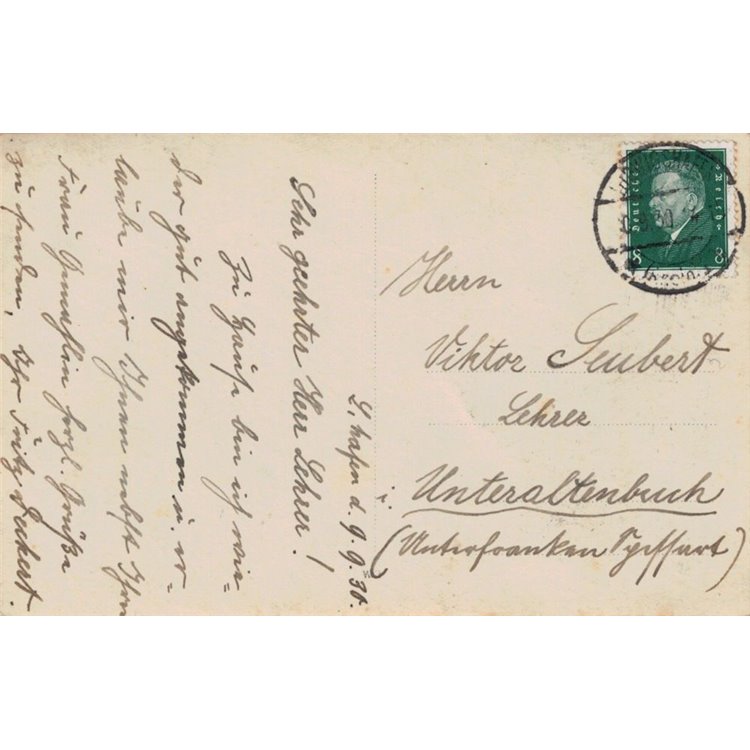 L'hafen d. 9.9.30.
Sehr geehrter Herr Lehrer!
Zu Hause bin ich wie=
der gut angekommen u. er=
laube mir Ihnen nebst Ihrer
Frau Gemahlin herzl. Grüße
zu senden. Ihr Fritz
Herrn
Viktor Seubert
Lehrer
i Unteraltenbuch
(Unterfranken Spessart)
Deutsches Reich
8 8
30